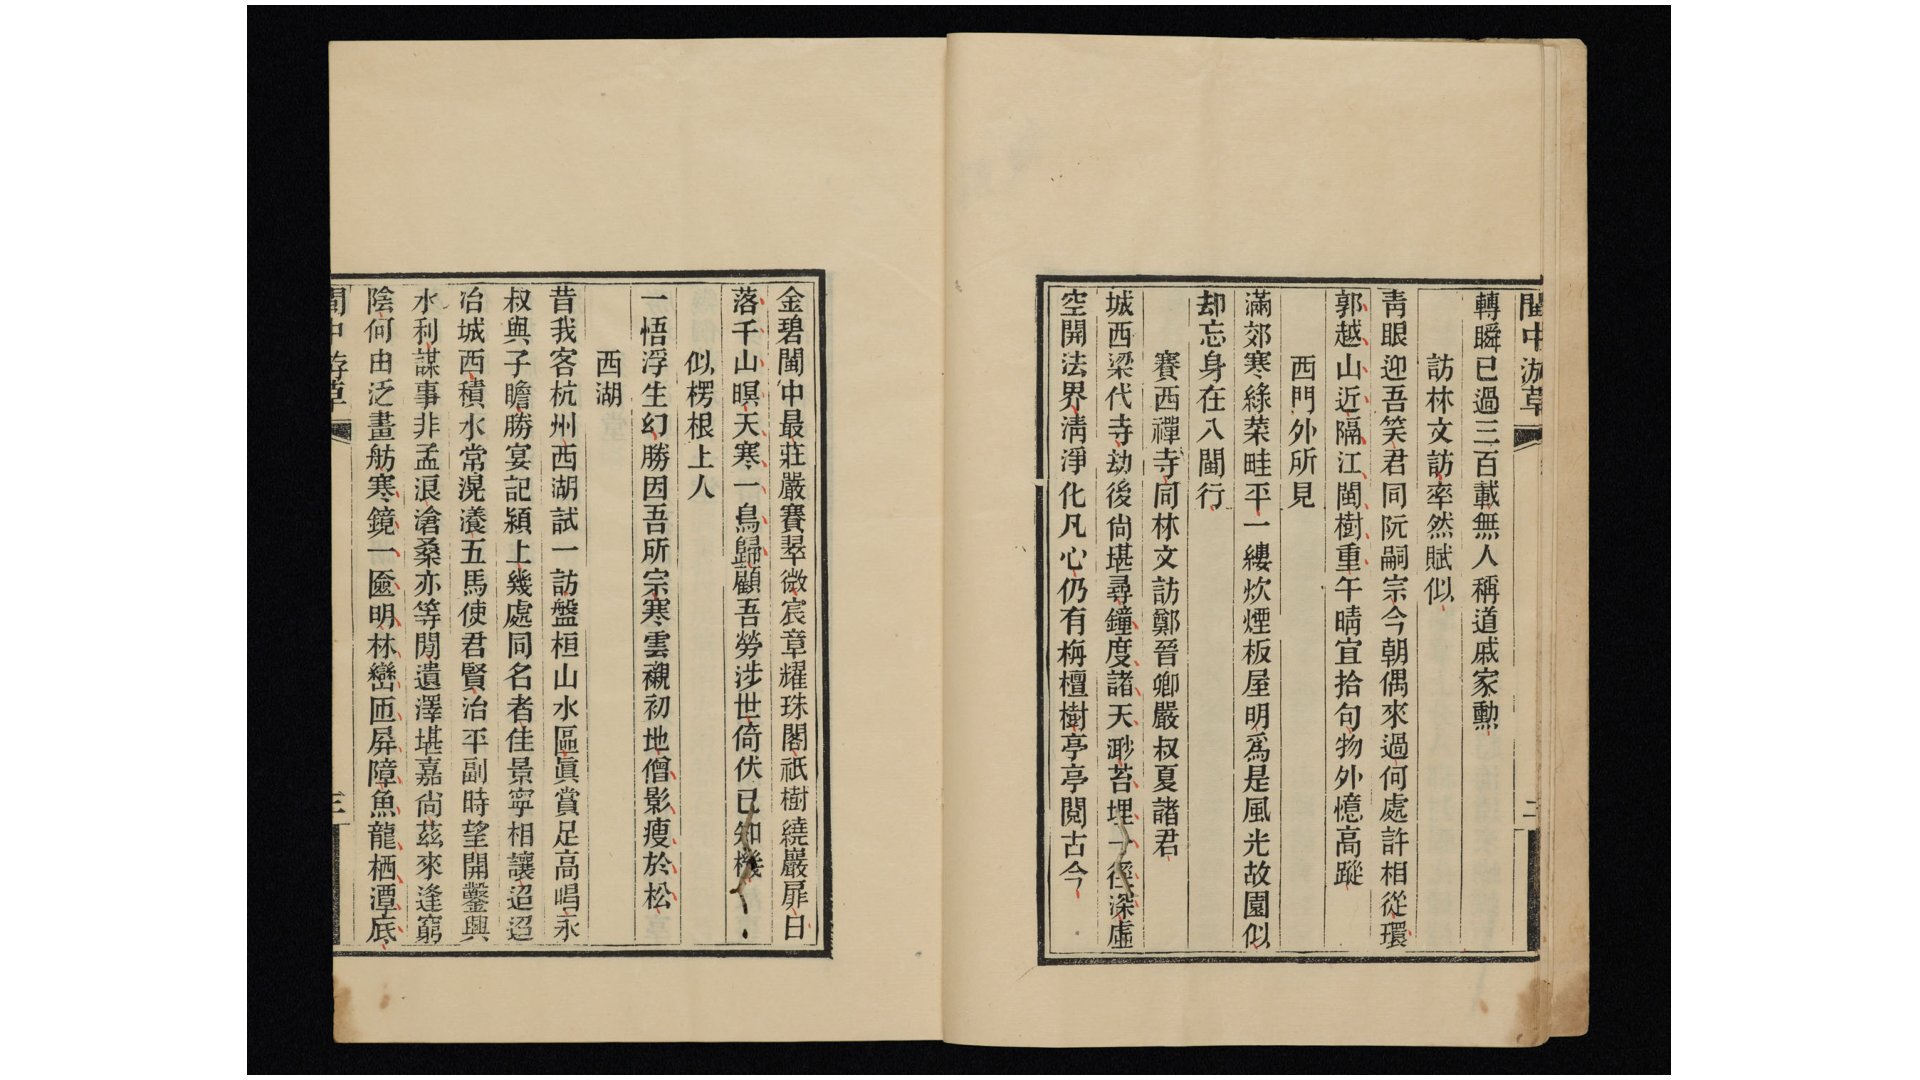 閩中游草
二
轉瞬已過三百載無人稱道戚家勳
訪林文訪率然賦似
靑眼迎吾笑君同阮嗣宗今朝偶來過何處許相從環
郭越山近隔江閩樹重午晴宜拾句物外憶高蹤
西門外所見
滿郊寒綠菜畦平一縷炊煙板屋明爲是風光故園似
却忘身在八閩行
賽西禪寺同林文訪鄭晉卿嚴叔夏諸君
城西梁代寺劫後尙堪尋鐘度諸天渺苔埋一徑深虛
空開法界淸淨化凡心仍有栴檀樹亭亭閱古今
金碧閩中最莊嚴賽翠微宸章耀珠閣祇樹繞巖扉日
落千山暝天寒一鳥歸顧吾勞涉世倚伏已知機
似楞根上人
一悟浮生幻勝因吾所宗寒雲襯初地僧影瘦於松
西湖
昔我客杭州西湖試一訪盤桓山水區眞賞足高唱永
叔與子瞻勝宴記潁上幾處同名者佳景寧相讓迢迢
冶城西積水常滉瀁五馬使君賢治平副時望開鑿興
水利謀事非孟浪滄桑亦等閒遺澤堪嘉尙茲來逢窮
陰何由泛畫舫寒鏡一匳明林巒匝屛障魚龍栖潭底
閩中游草
三